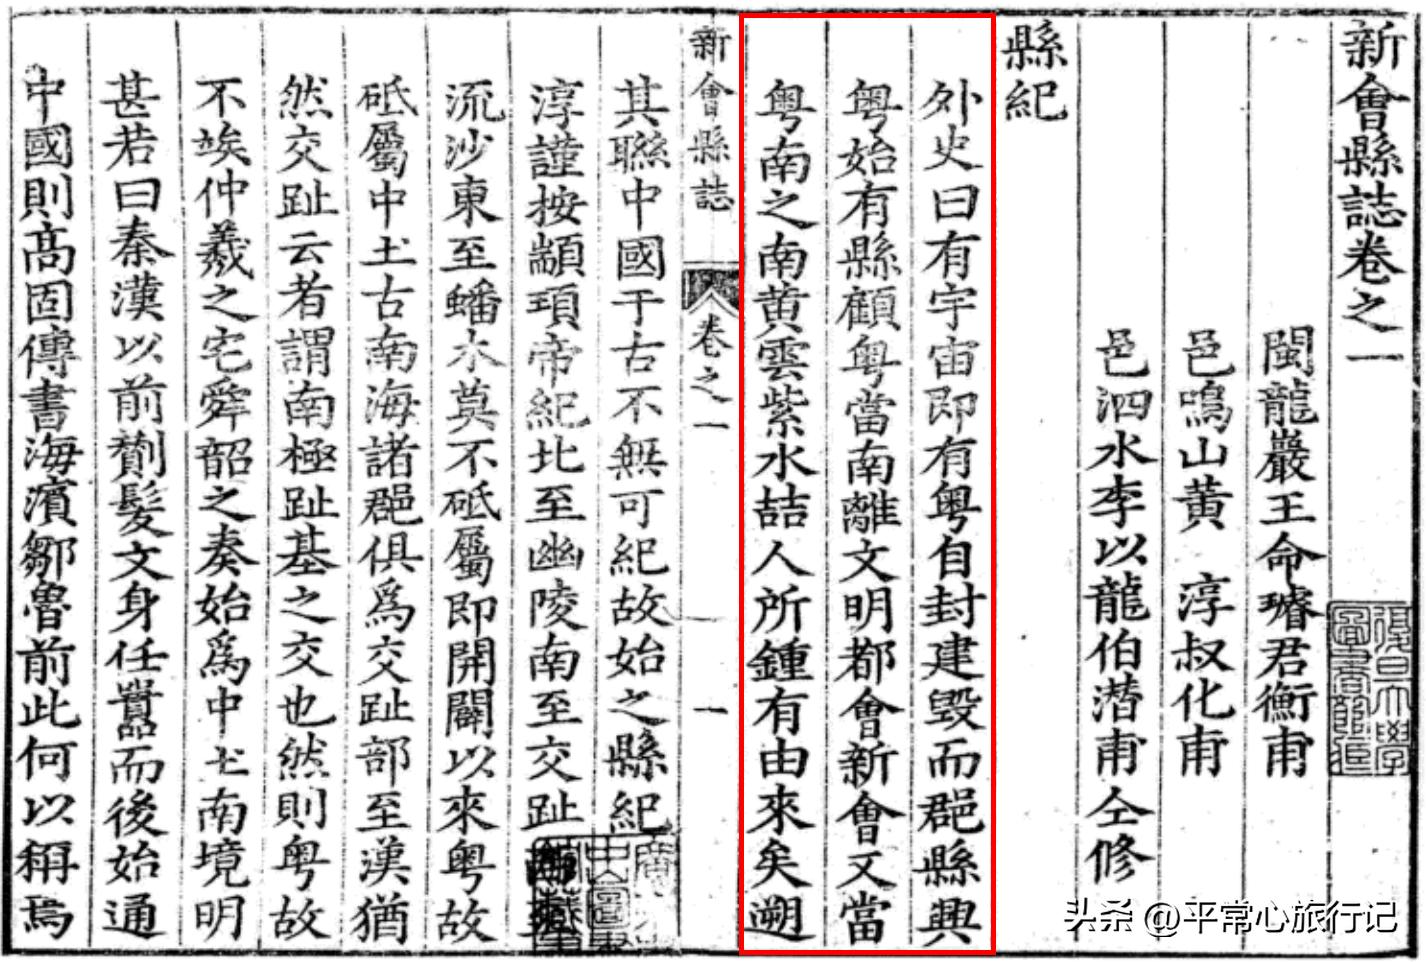 新會縣誌卷之一
閩龍巖王命璿君衡甫
邑鳴山黃淳叔化甫
邑泗水李以龍伯潛甫仝修
縣紀
外史曰有宇宙即有粤自封建毀而郡縣興
粤始有縣顧粤當南離文明都會新會又當
粤南之南黄雲紫水喆人所鍾有由來矣遡
新會縣誌
卷之一
一
其聯中國于古不無可紀故始之縣紀
淳謹按顓頊帝紀北至幽陵南至交趾
流沙東至蟠木莫不砥屬即開闢以來粤故
砥屬中土古南海諸郡俱爲交趾部至漢猶
然交趾云者謂南極趾基之交也然則粤故
不竢仲羲之宅舜韶之奏始爲中土南境明
甚若曰秦漢以前劗髮文身任囂而後始通
中國則高固傳書海濱鄒魯前此何以稱焉
头条 @平常心旅行记